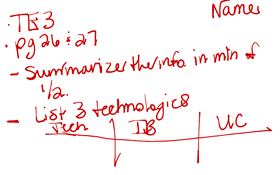 Name
· TE3
· pg 26 & 27
- Summarize the info in min of
1/2.
- List 3 technologies
Tech IB UC